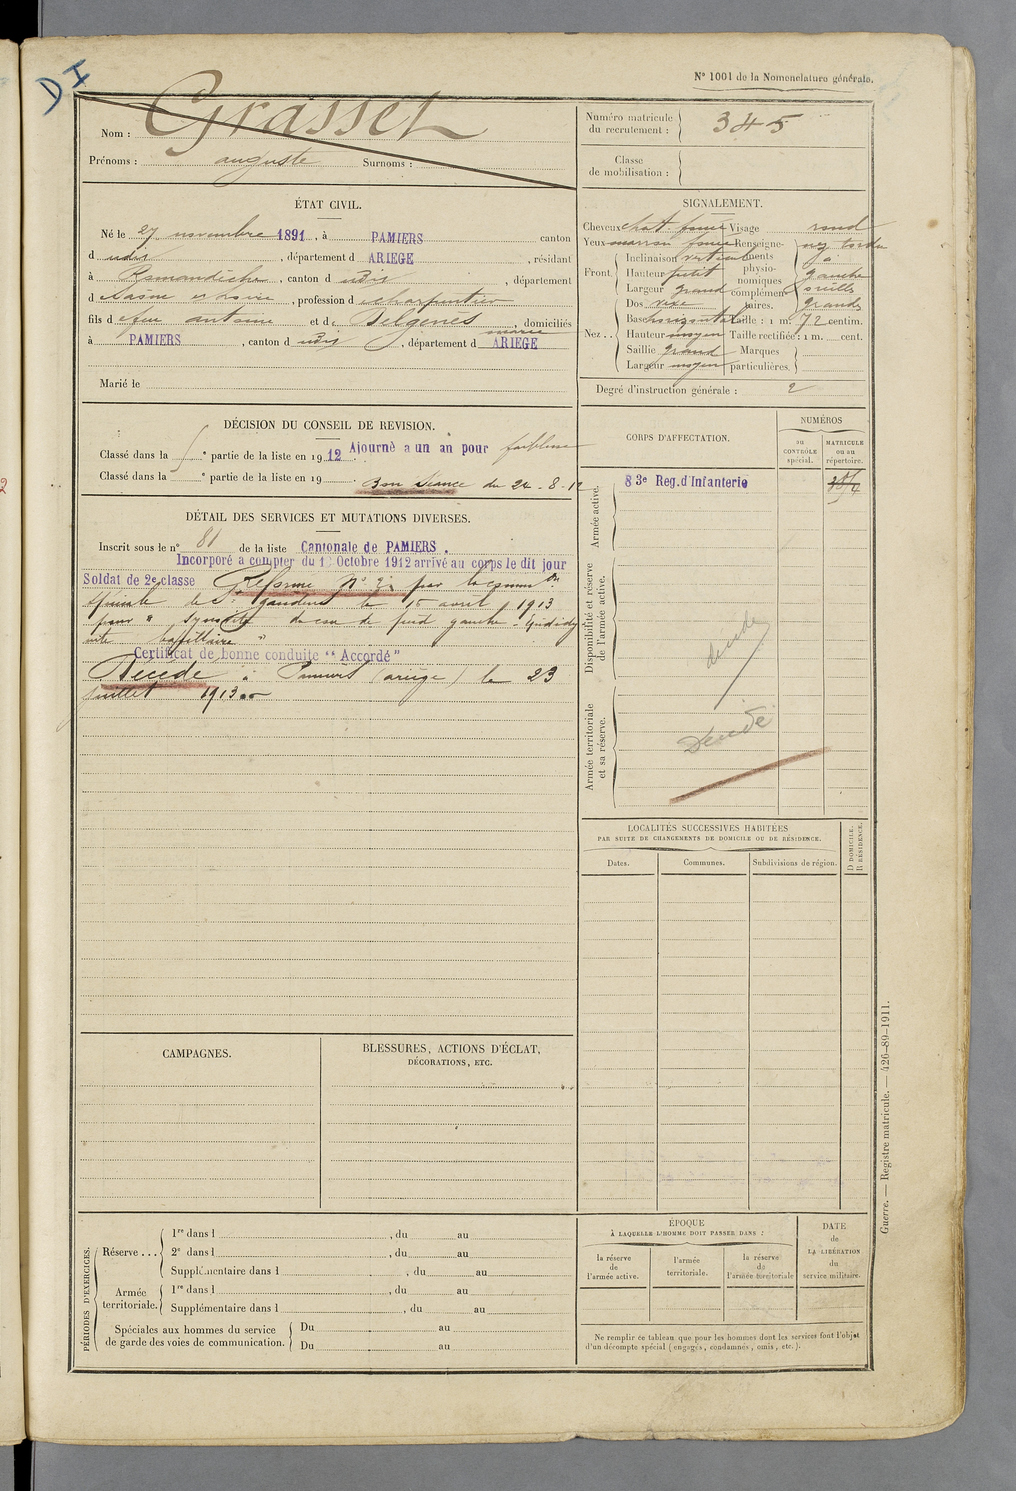 D I
N° 1001 de la Nomenclature générale.
Nom : Grasset
Prénoms : auguste Surnoms :
Numéro matricule du recrutement : 345
Classe de mobilisation :
ÉTAT CIVIL.
Né le 27 novembre 1891, à PAMIERS canton
d udit, département d ARIEGE, résidant
à Romanèche, canton d udit, département
d Saône et Loire, profession d charpentier
fils d feu antoine et de Delgenes marie, domiciliés
à PAMIERS, canton d udit, département d ARIEGE
Marié le
SIGNALEMENT.
Cheveux chat. foncé Visage rond
Yeux marron foncé Renseigne-
ments
physio-
nomiques
complémen-
taires.
nez tordu
à
gauche
oreilles
grandes
Front. Inclinaison vertical
Hauteur petit
Largeur grand
Nez.. Dos vexe
Base horizontal Taille : 1 m. 72 centim.
Hauteur moyen Taille rectifiée : 1 m. cent.
Saillie grand Marques
Largeur moyen particulières.
Degré d'instruction générale : 2
DÉCISION DU CONSEIL DE REVISION.
Classé dans la ° partie de la liste en 1912 Ajourné a un an pour faiblesse
Classé dans la ° partie de la liste en 19 Bon séance du 24-8-12
DÉTAIL DES SERVICES ET MUTATIONS DIVERSES.
Inscrit sous le n° 81 de la liste Cantonale de PAMIERS.
Incorporé à compter du 1 Octobre 1912 arrivé au corps le dit jour
Soldat de 2e classe Réformé N° 2 par la comm on
spéciale de St gaudens le 15 avril 1913
pour " du cou de pied gauche
"
Certificat de bonne conduite "Accordé"
Décédé à Pamiers (ariège) le 23
juillet 1913
CORPS D'AFFECTATION.
NUMÉROS
au CONTRÔLE spécial.
MATRICULE ou au répertoire.
Armée active.
83e Reg. d'Infanterie
Disponibilité et réserve de l'armée active.
décédé
Armée territoriale et sa réserve.
Décédé
LOCALITÉS SUCCESSIVES HABITÉES
PAR SUITE DE CHANGEMENTS DE DOMICILE OU DE RÉSIDENCE.
D DOMICILE.
R RÉSIDENCE.
Dates. Communes. Subdivisions de région.
CAMPAGNES.
BLESSURES, ACTIONS D'ÉCLAT,
DÉCORATIONS, ETC.
PÉRIODES D'EXERCICES.
Réserve ... 1re dans l , du au
2e dans l , du au
Supplémentaire dans l , du au
Armée territoriale. 1re dans l , du au
Supplémentaire dans l , du au
Spéciales aux hommes du service
de garde des voies de communication.
Du au
Du au
ÉPOQUE
À LAQUELLE L'HOMME DOIT PASSER DANS :
la réserve de l'armée active.
l'armée territoriale.
la réserve de l'armée territoriale
DATE
de
LA LIBÉRATION
du
service militaire.
Ne remplir ce tableau que pour les hommes dont les services font l'objet
d'un décompte spécial (engagés, condamnés, omis, etc.).
Guerre. — Registre matricule. — 426-89-1911.